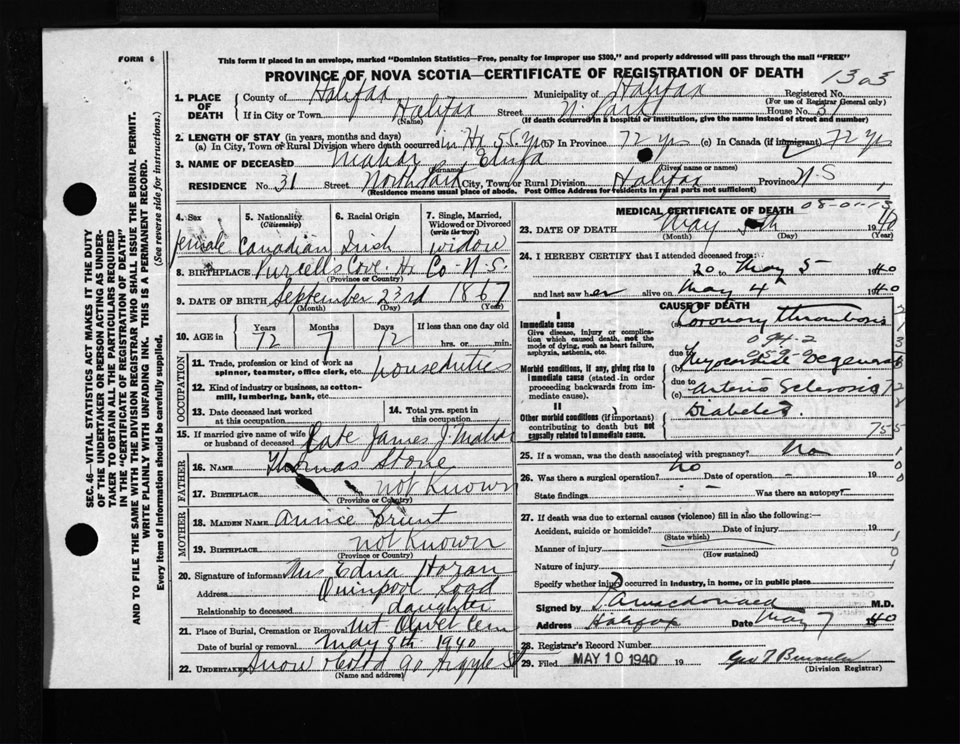 FORM 6
This form if placed in an envelope, marked "Dominion Statistics—Free, penalty for improper use $300," and properly addressed will pass through the mail "FREE"
PROVINCE OF NOVA SCOTIA—CERTIFICATE OF REGISTRATION OF DEATH
1303
1. PLACE OF DEATH
County of Halifax Municipality of Halifax Registered No.
(For use of Registrar General only)
If in City or Town Halifax Street N. Park House No. 31
(Name) (If death occurred in a hospital or institution, give the name instead of street and number)
2. LENGTH OF STAY (in years, months and days)
(a) In City, Town or Rural Division where death occurred In Hx 55 Yrs (b) In Province 72 yrs (c) In Canada (if immigrant) 72 Yrs
3. NAME OF DECEASED Mahar
(Surname) (Given name or names)
RESIDENCE No. 31 Street North Park City, Town or Rural Division Halifax Province N.S
(Residence means usual place of abode. Post Office Address for residents in rural parts not sufficient)
4. Sex
female
5. Nationality (Citizenship)
Canadian
6. Racial Origin
Irish
7. Single, Married, Widowed or Divorced (write the word)
widow
8. BIRTHPLACE Purcell's Cove Hx Co- N.S.
(Province or Country)
9. DATE OF BIRTH September 23rd 1867
(Month) (Day) (Year)
10. AGE in
Years Months Days If less than one day old
72 7 12 hrs. or min.
OCCUPATION
11. Trade, profession or kind of work as spinner, teamster, office clerk, etc. housduties
12. Kind of industry or business, as cotton-mill, lumbering, bank, etc.
13. Date deceased last worked at this occupation
14. Total yrs. spent in this occupation
15. If married give name of wife or husband of deceased Late James J. Mahar
FATHER
16. NAME Thomas Stone
17. BIRTHPLACE not Known
(Province or Country)
MOTHER
18. MAIDEN NAME Annie Brunt
19. BIRTHPLACE not Known
(Province or Country)
20. Signature of informant Mrs Edna Horan
Address Quinpool Road
Relationship to deceased daughter
21. Place of Burial, Cremation or Removal Mt Olivet Cem
Date of burial or removal May 8th 1940
22. UNDERTAKER Snow & Co Ltd 90 Argyle St
(Name and address)
MEDICAL CERTIFICATE OF DEATH 08-01-13
23. DATE OF DEATH May 5th 1940
(Month) (Day) (Year)
24. I HEREBY CERTIFY that I attended deceased from
to May 5 1940
and last saw her alive on May 4 1940
CAUSE OF DEATH
I
Immediate cause
Give disease, injury or complication which caused death, not the mode of dying, such as heart failure, asphyxia, asthenia, etc.
(a) Coronary thrombosis
094-2
due to
(b) Myocardial degenerat
Morbid conditions, if any, giving rise to immediate cause (stated in order proceeding backwards from immediate cause).
due to
(c) Arterio Sclerosis
II
Other morbid conditions (if important) contributing to death but not causally related to immediate cause.
Diabetes.
25. If a woman, was the death associated with pregnancy? No
26. Was there a surgical operation? no Date of operation - 19
State findings - Was there an autopsy? -
27. If death was due to external causes (violence) fill in also the following:—
Accident, suicide or homicide? Date of injury 19
(State which)
Manner of injury
(How sustained)
Nature of injury
Specify whether injury occurred in industry, in home, or in public place
Signed by Macdonald M.D.
Address Halifax Date May 7 1940
28. Registrar's Record Number
29. Filed MAY 10 1940 19
(Division Registrar)
SEC. 46—VITAL STATISTICS ACT MAKES IT THE DUTY
OF THE UNDERTAKER OR PERSON ACTING AS UNDER-
TAKER TO OBTAIN ALL THE PARTICULARS REQUIRED
IN THE "CERTIFICATE OF REGISTRATION OF DEATH"
AND TO FILE THE SAME WITH THE DIVISION REGISTRAR WHO SHALL ISSUE THE BURIAL PERMIT.
WRITE PLAINLY WITH UNFADING INK. THIS IS A PERMANENT RECORD.
Every item of information should be carefully supplied. (See reverse side for instructions.)